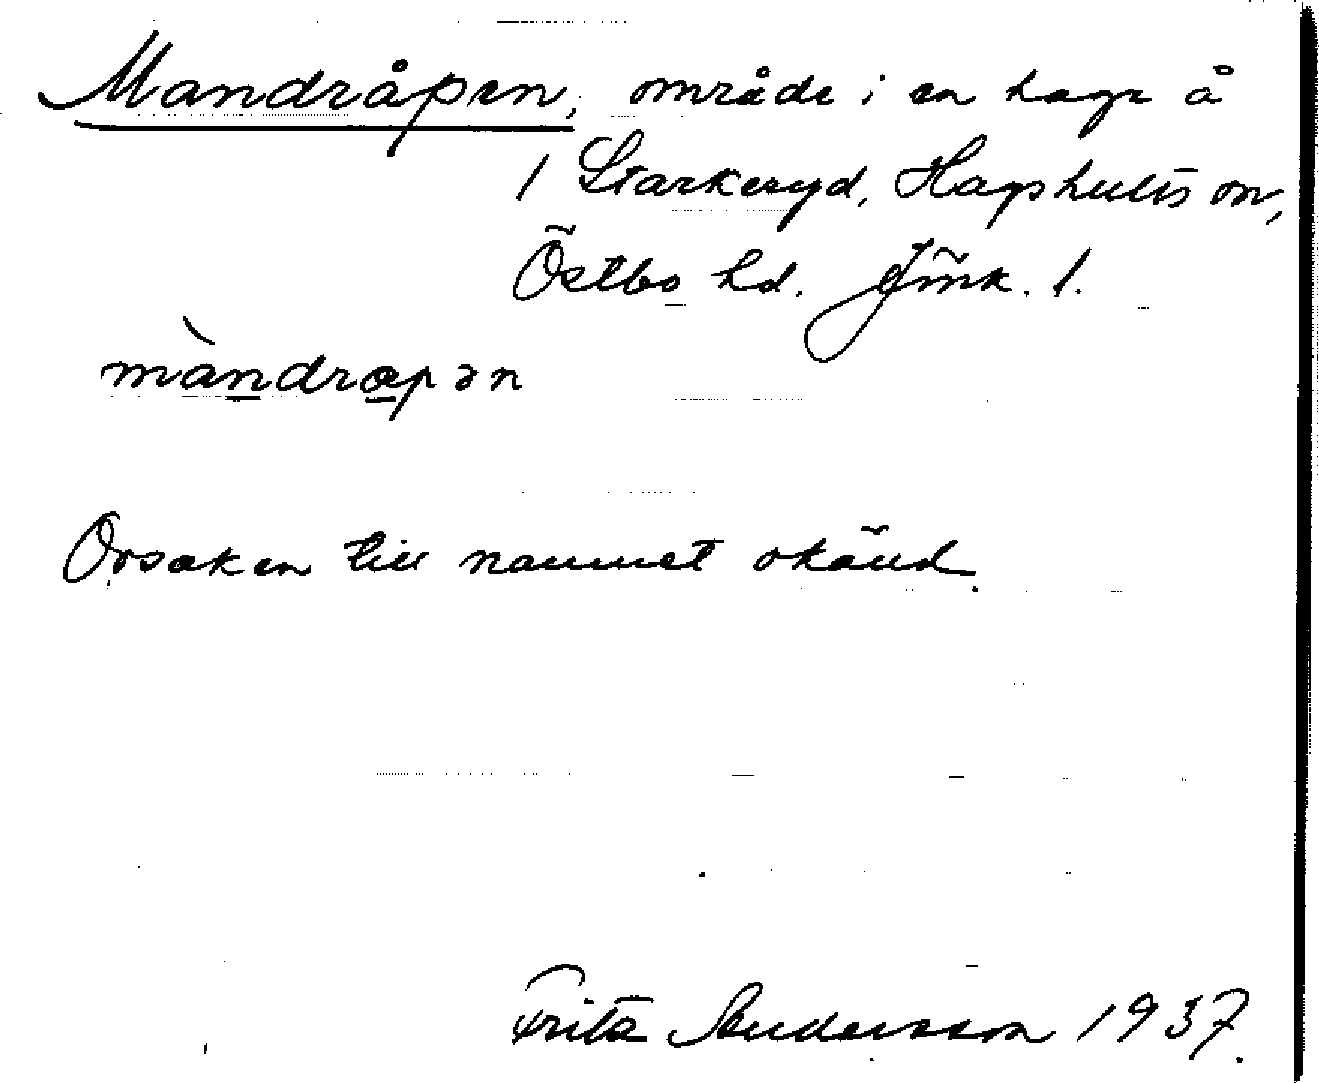 Mandråpen, område i en hage å
1 Starkeryd, Hagshults sn,
Östbo hd. Jönk. l.
màndræpən
Orsaken till namnet okänd.
Fritz Andersson 1937.